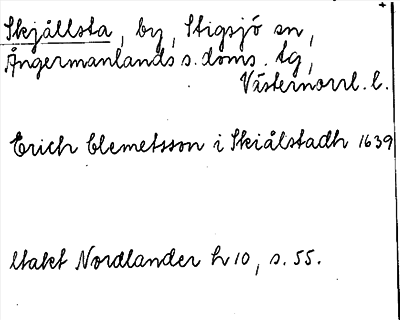 Skjållsta, by, Stigsjö sn,
Ångermanlands s. doms. tg,
Västernorrl. l.
Erich Clemetsson i Skiålstadh 1639
Utakt Nordlander h 10, s. 55.